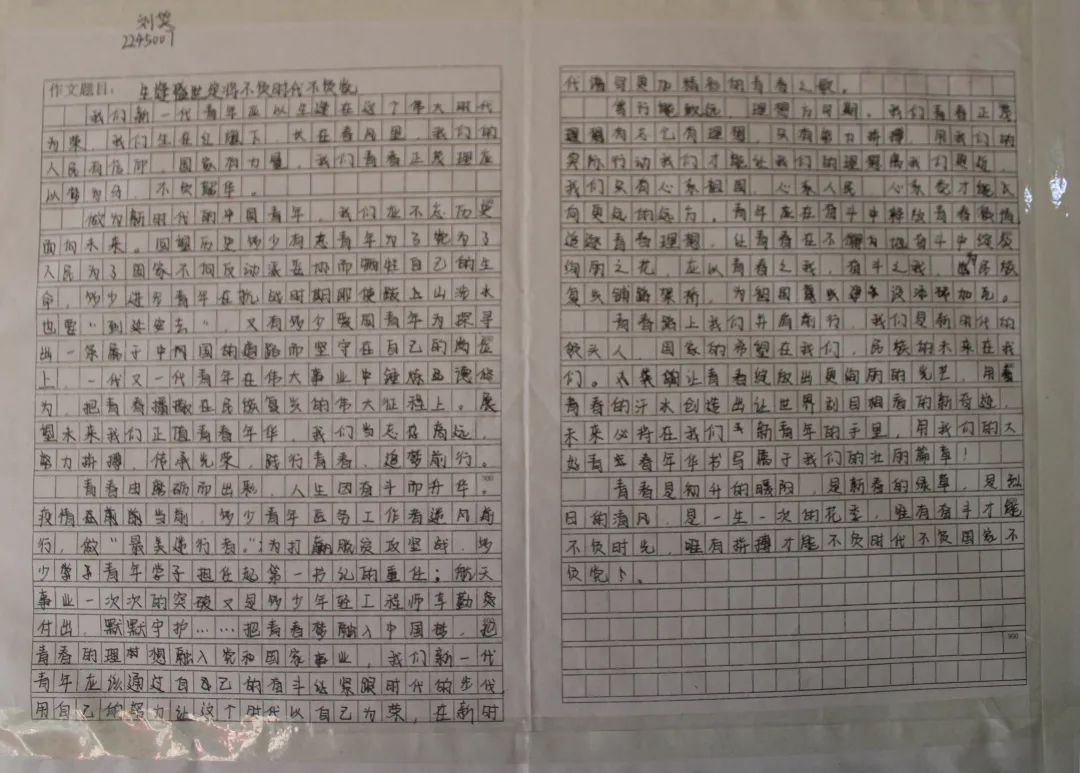 刘
2245007
作文题目：生逢盛世定将不负时代不负党
我们新一代青年应以生逢在这个伟大时代
为荣，我们生在红旗下，长在春风里，我们的
人民有信仰，国家有力量，我们青春正茂理应
以梦为马，不负韶华。
做为新时代的中国青年，我们应不忘历史
面向未来。回望历史多少有志青年为了党为了
人民为了国家不向反动派妥协而牺牲自己的生
命，多少进步青年在抗战时期即使跋山涉水
也要“到延安去”，又有多少爱国青年为探寻
出一条属于中国的道路而坚守在自己的岗位
上，一代又一代青年在伟大事业中锤炼品德修
为，把青春播撒在民族复兴的伟大征程上。展
望未来我们正值青春年华，我们当志存高远，
努力拼搏，传承光荣，践行青春，追梦前行。
青春由磨砺而出彩，人生因奋斗而升华。
疫情当前，多少青年医务工作者逆风前
行，做“最美逆行者”；为打赢脱贫攻坚战，多
少青年学子担任起第一书记的重任；航天
事业一次次的突破又是多少年轻工程师辛勤
付出，默默守护……把青春梦融入中国梦，把
青春的理想融入党和国家事业，我们新一代
青年应该通过自己的奋斗让紧跟时代的步伐
用自己的努力让这个时代以自己为荣，在新时
代谱写更加精彩的青春之歌。
笃行能致远，理想方可期。我们青春正茂
理想，只有努力拼搏，用我们的
实际行动我们才能让我们的理想离我们更近，
我们只有心系祖国，心系人民，心系党才能飞
向更远的远方。青年应在奋斗中释放青春激情
追逐青春理想，让青春在不懈地奋斗中绽放
绚丽之花，应以青春之我，奋斗之我，为民族
复兴铺路架桥，为祖国建设添砖加瓦。
青春路上我们并肩前行，我们是新时代的
领头人，国家的希望在我们，民族的未来在我
们。让青春绽放出更绚丽的光芒，用
青春的汗水创造出让世界刮目相看的新奇迹，
未来必将在我们新青年的手里，用我们的大
好青春年华书写属于我们的壮丽篇章！
青春是初升的暖阳，是新春的绿草，是烈
日的清风，是一生一次的花季，唯有奋斗才能
不负时光，唯有拼搏才能不负时代不负国家不
负党。
900